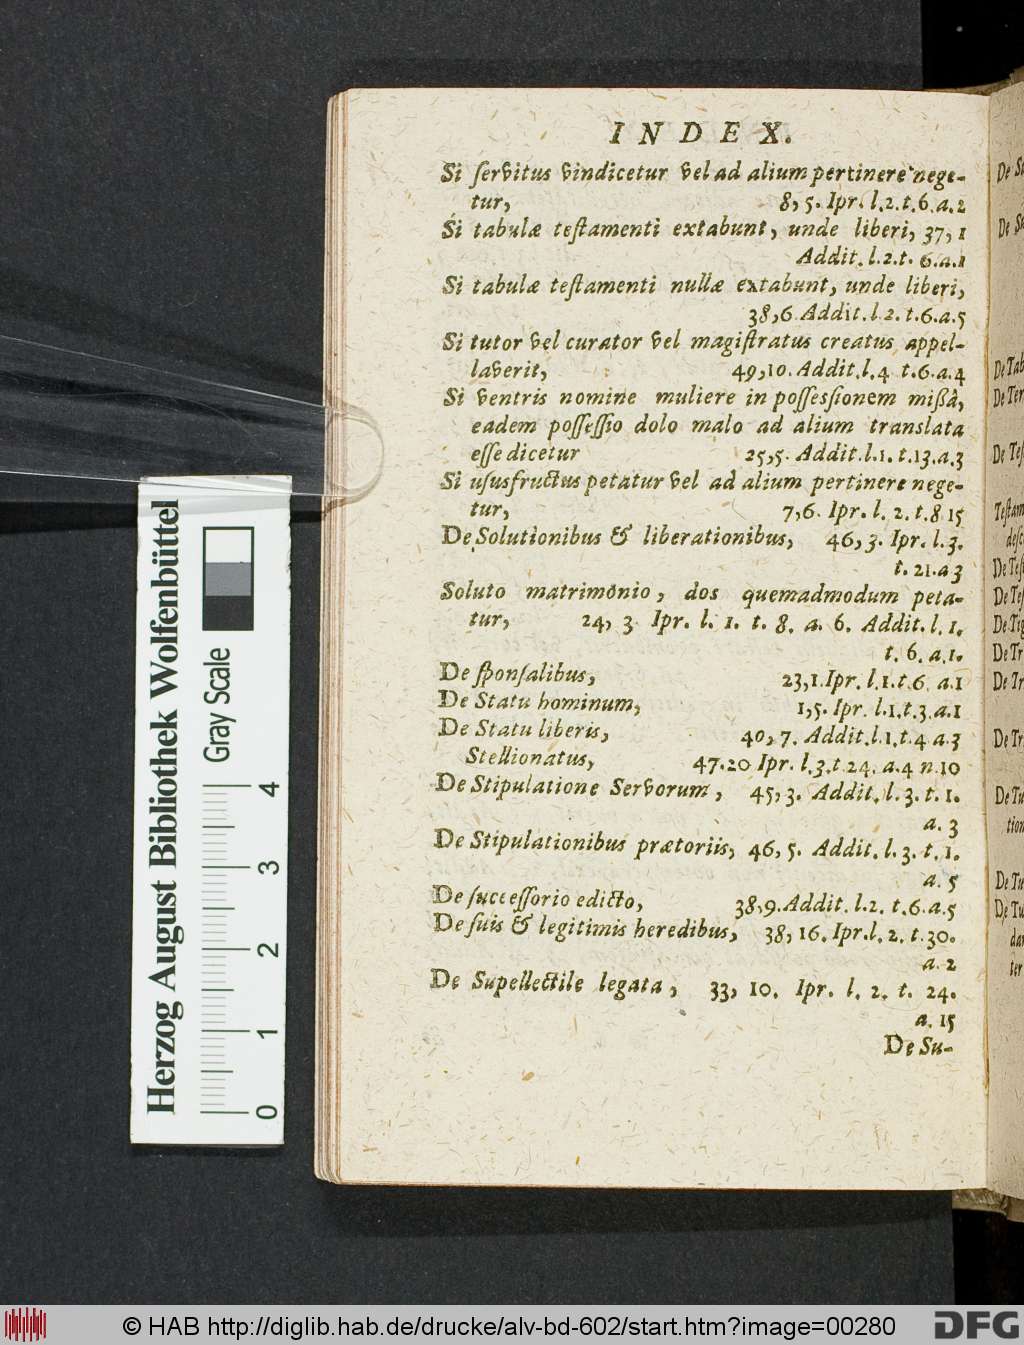 INDEX.
Si ſervitus vindicetur vel ad alium pertinere nege-
tur, 8, 5. Ipr. l.2.t.6.a.2
Si tabulæ teſtamenti extabunt, unde liberi, 37, 1
Addit. l.2.t. 6.a.1
Si tabulæ teſtamenti nullæ extabunt, unde liberi,
38,6 Addit. l.2. t.6.a.5
Si tutor vel curator vel magiſtratus creatus appel-
laverit, 49,10. Addit. l.4 t.6.a.4
Si ventris nomine muliere in poſſeſsionem mißâ,
eadem poſſeſſio dolo malo ad alium translata
eſſe dicetur 25,5. Addit.l.1. t.13.a.3
Si uſusfructus petatur vel ad alium pertinere nege-
tur, 7,6. Ipr. l. 2. t.8 15
De Solutionibus & liberationibus, 46, 3. Ipr. l. 3.
t. 21.a 3
Soluto matrimonio, dos quemadmodum peta-
tur, 24, 3 Ipr. l. 1. t. 8. a. 6. Addit. l. 1.
t. 6. a.1.
De ſponſalibus, 23,1.Ipr. l.1.t.6. a.1
De Statu hominum, 1,5. Ipr. l.1.t.3.a.1
De Statu liberis, 40, 7. Addit.l.1.t.4 a.3
Stellionatus, 47.20 Ipr. l.3.t.24. a.4 n.10
De Stipulatione Servorum, 45, 3. Addit. l. 3. t. 1.
a. 3
De Stipulationibus prætoriis, 46, 5. Addit. l. 3. t. 1.
a. 5
De ſucceſſorio edicto, 38,9. Addit. l.2. t.6.a.5
De ſuis & legitimis heredibus, 38, 16. Ipr.l. 2. t.30.
a. 2
De Supellectile legata, 33, 10. Ipr. l. 2. t. 24.
a. 15
De Su-
Herzog August Bibliothek Wolfenbüttel
Gray Scale
0 1 2 3 4
© HAB http://diglib.hab.de/drucke/alv-bd-602/start.htm?image=00280
DFG